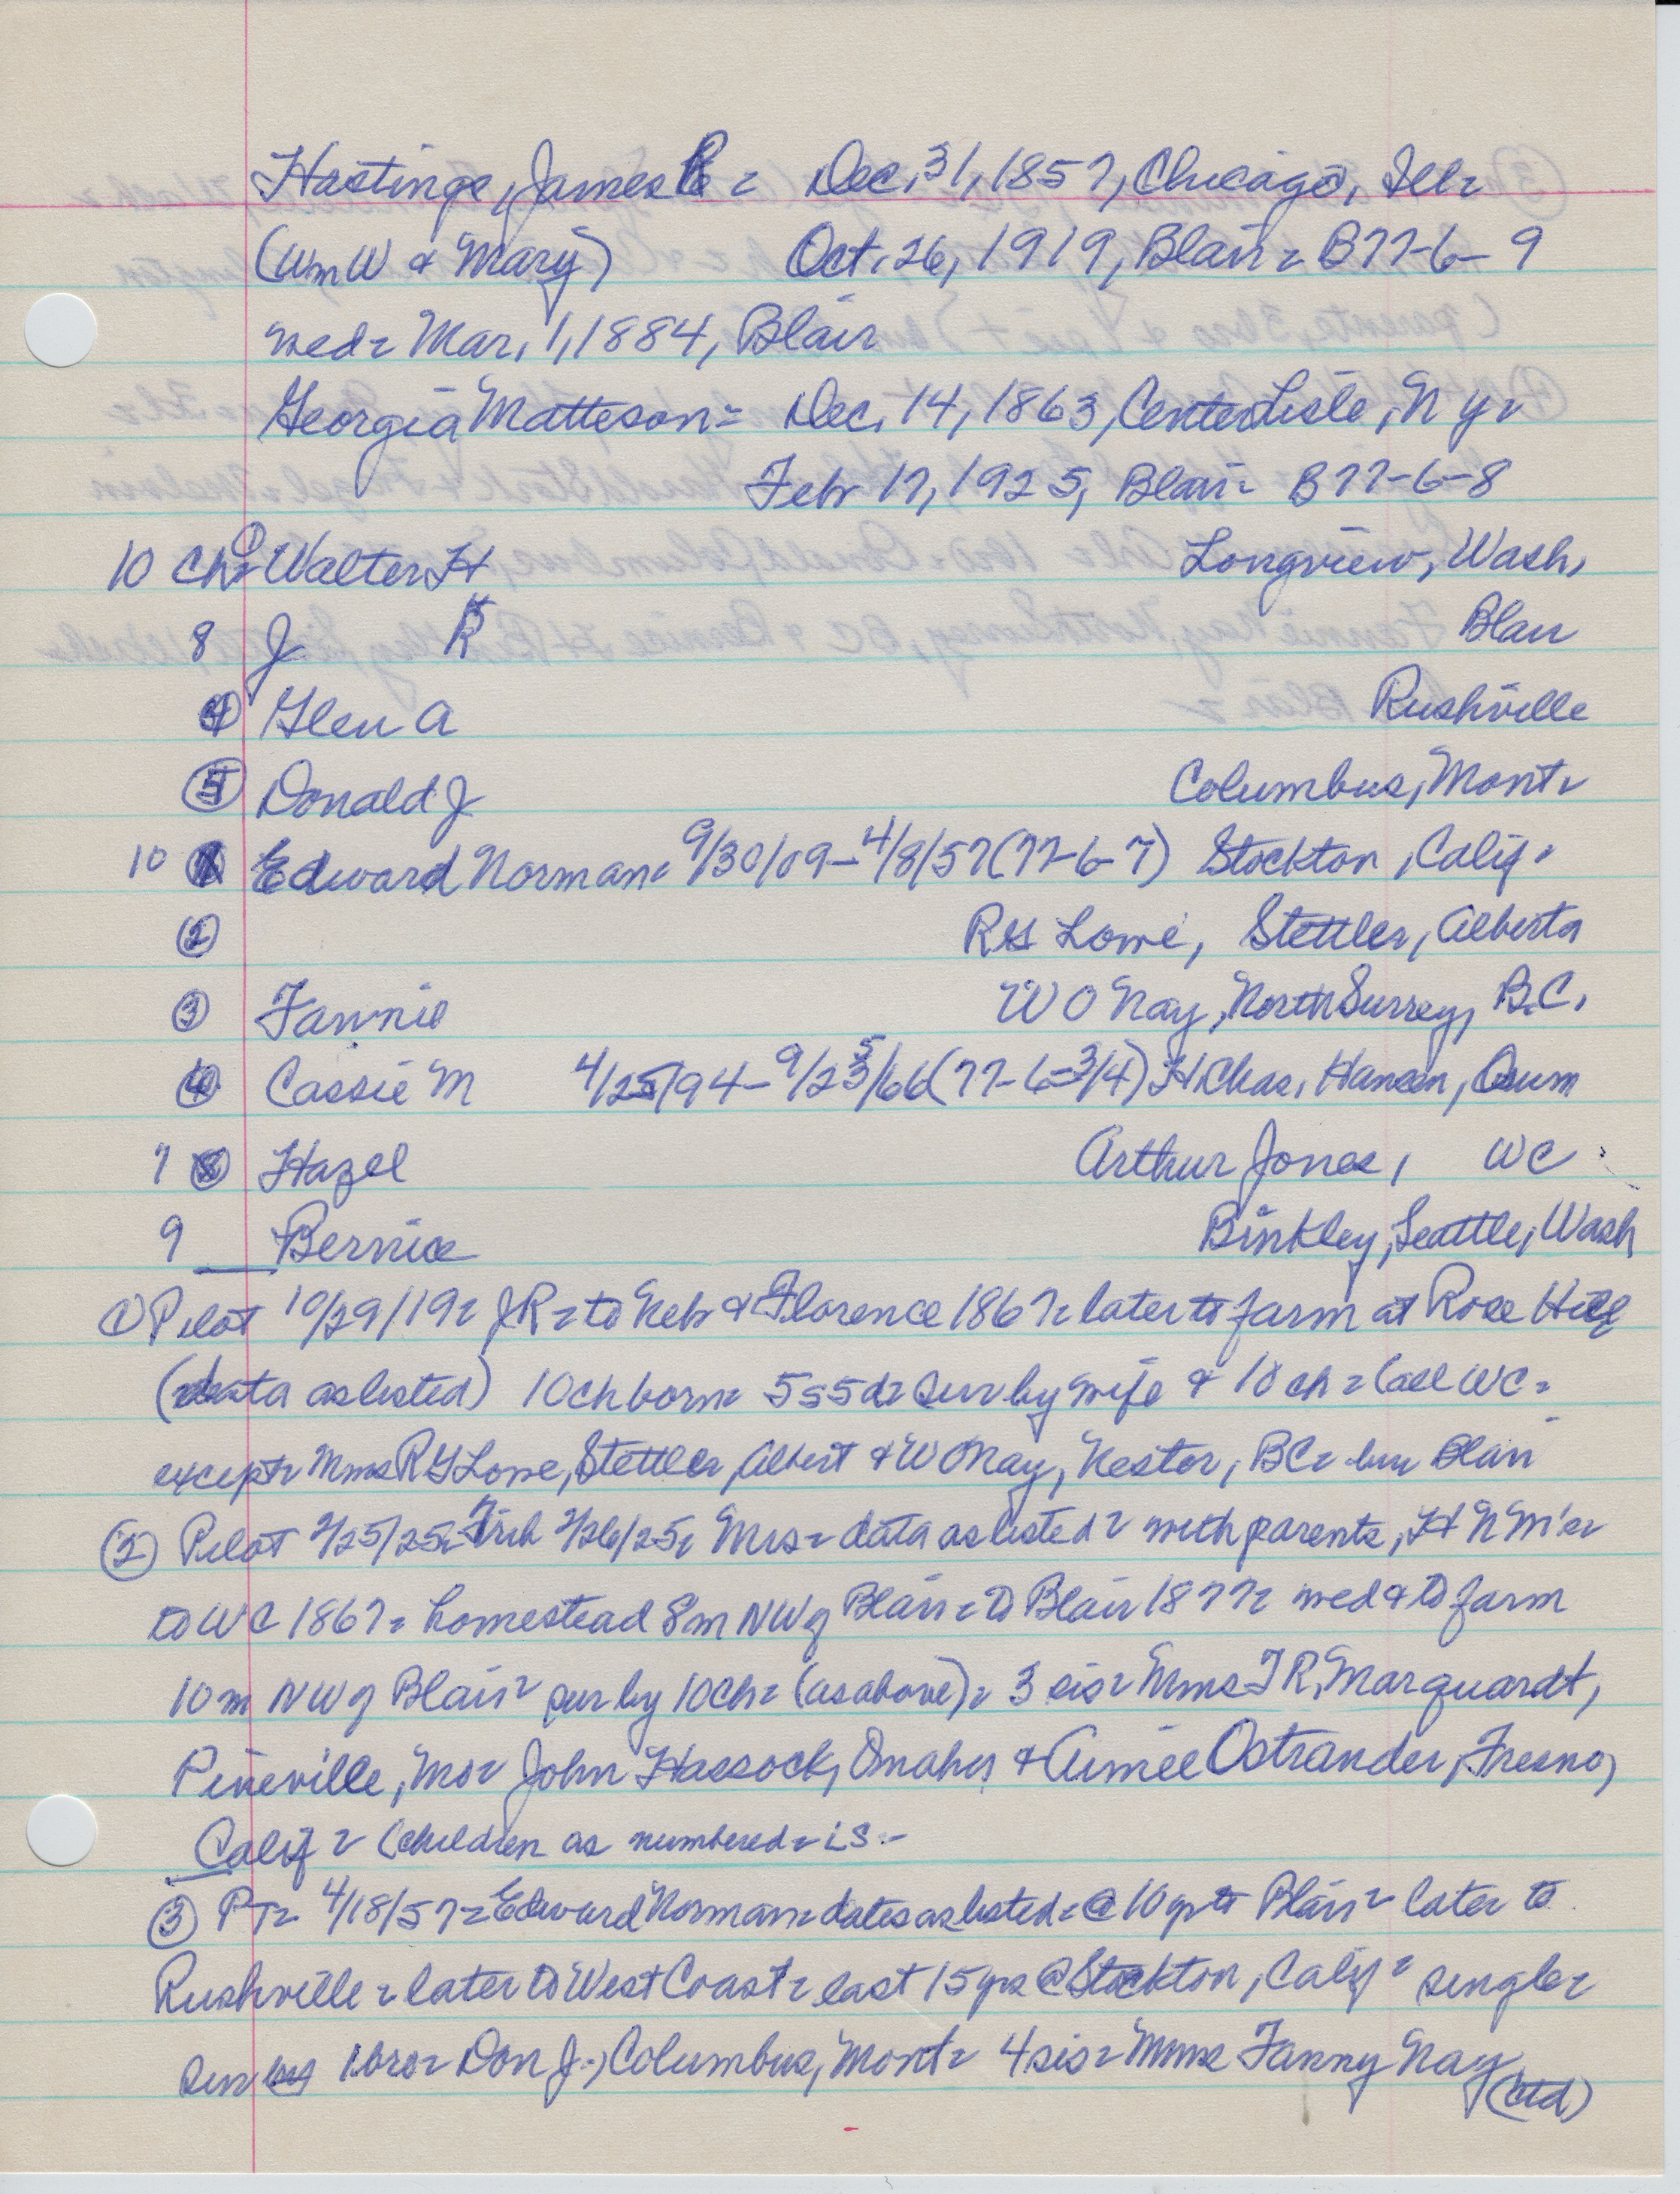 Hastings, James R = Dec. 31, 1857, Chicago, Ill=
(Wm W & Mary) Oct. 26, 1919, Blair = B77-6-9
wed= Mar. 1, 1884, Blair
Georgia Matteson = Dec. 14, 1863, Center Lisle, N Y=
Feb 17, 1925, Blair= B77-6-8
10 ch= ① Walter H Longview, Wash.
8 J R Blair
④ Glen A Rushville
⑤ Donald J Columbus, Mont=
10 Edward Norman= 9/30/09-4/8/57(77-6-7) Stockton, Calif.
② RG Lowe, Stettler, Alberta
③ Fannie W O Nay, North Surrey, B.C.
Cassie M 4/25/94-9/25/66(77-6-3/4) H Chas. Hansen, Orum
7 Hazel Arthur Jones, WC
9 Bernice Binkley, Seattle, Wash
① Pilot 10/29/19= JR= to Neb & Florence 1867= later to farm at Rose Hill
(data as listed) 10 ch born= 5s 5d= sur by wife & 10 ch= (all WC=
except= Mms RG Lowe, Stettler, Albert & W O Nay, Nestor, BC= bur Blair
② Pilot 2/25/25= Trib 2/26/25= Mrs= data as listed= with parents, H N M's=
to WC 1867= homestead 8m NW of Blair= to Blair 1877= wed & to farm
10 m NW of Blair= sur by 10 ch= (as above)= 3 sis= Mms T R. Marquardt,
Pineville, Mo= John Hassock, Omaha & Aimee Ostrander, Fresno,
Calif= (children as numbered= is.-
③ PT= 4/18/57= Edward Norman= dates as listed= @ 10 yr to Blair= later to
Rushville= later to West Coast= last 15 yrs @ Stockton, Calif= single=
sur by 1 bro= Don J., Columbus, Mont= 4 sis= Mms Fanny Nay,
(ctd)